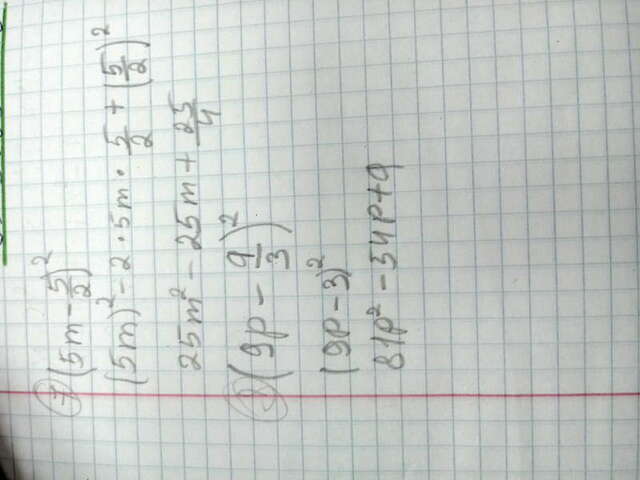 7 (5m - 5/2)²
(5m)² - 2 · 5m · 5/2 + (5/2)²
25m² - 25m + 25/4
(9p - 9/3)²
(9p - 3)²
81p² - 54p + 9